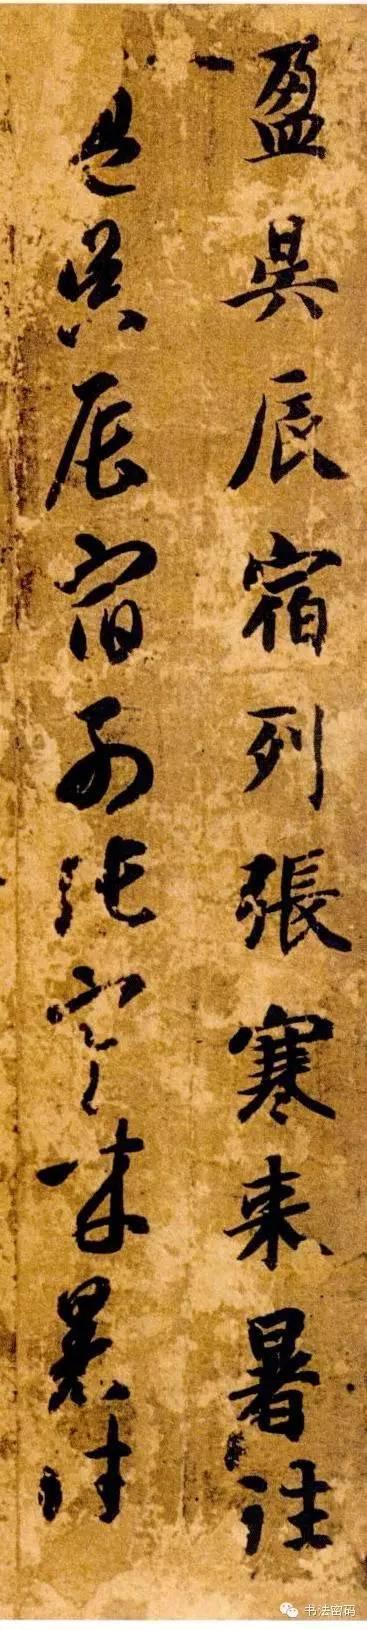 盈昃辰宿列張寒来暑往
盈昃辰宿列張寒来暑往
书法密码